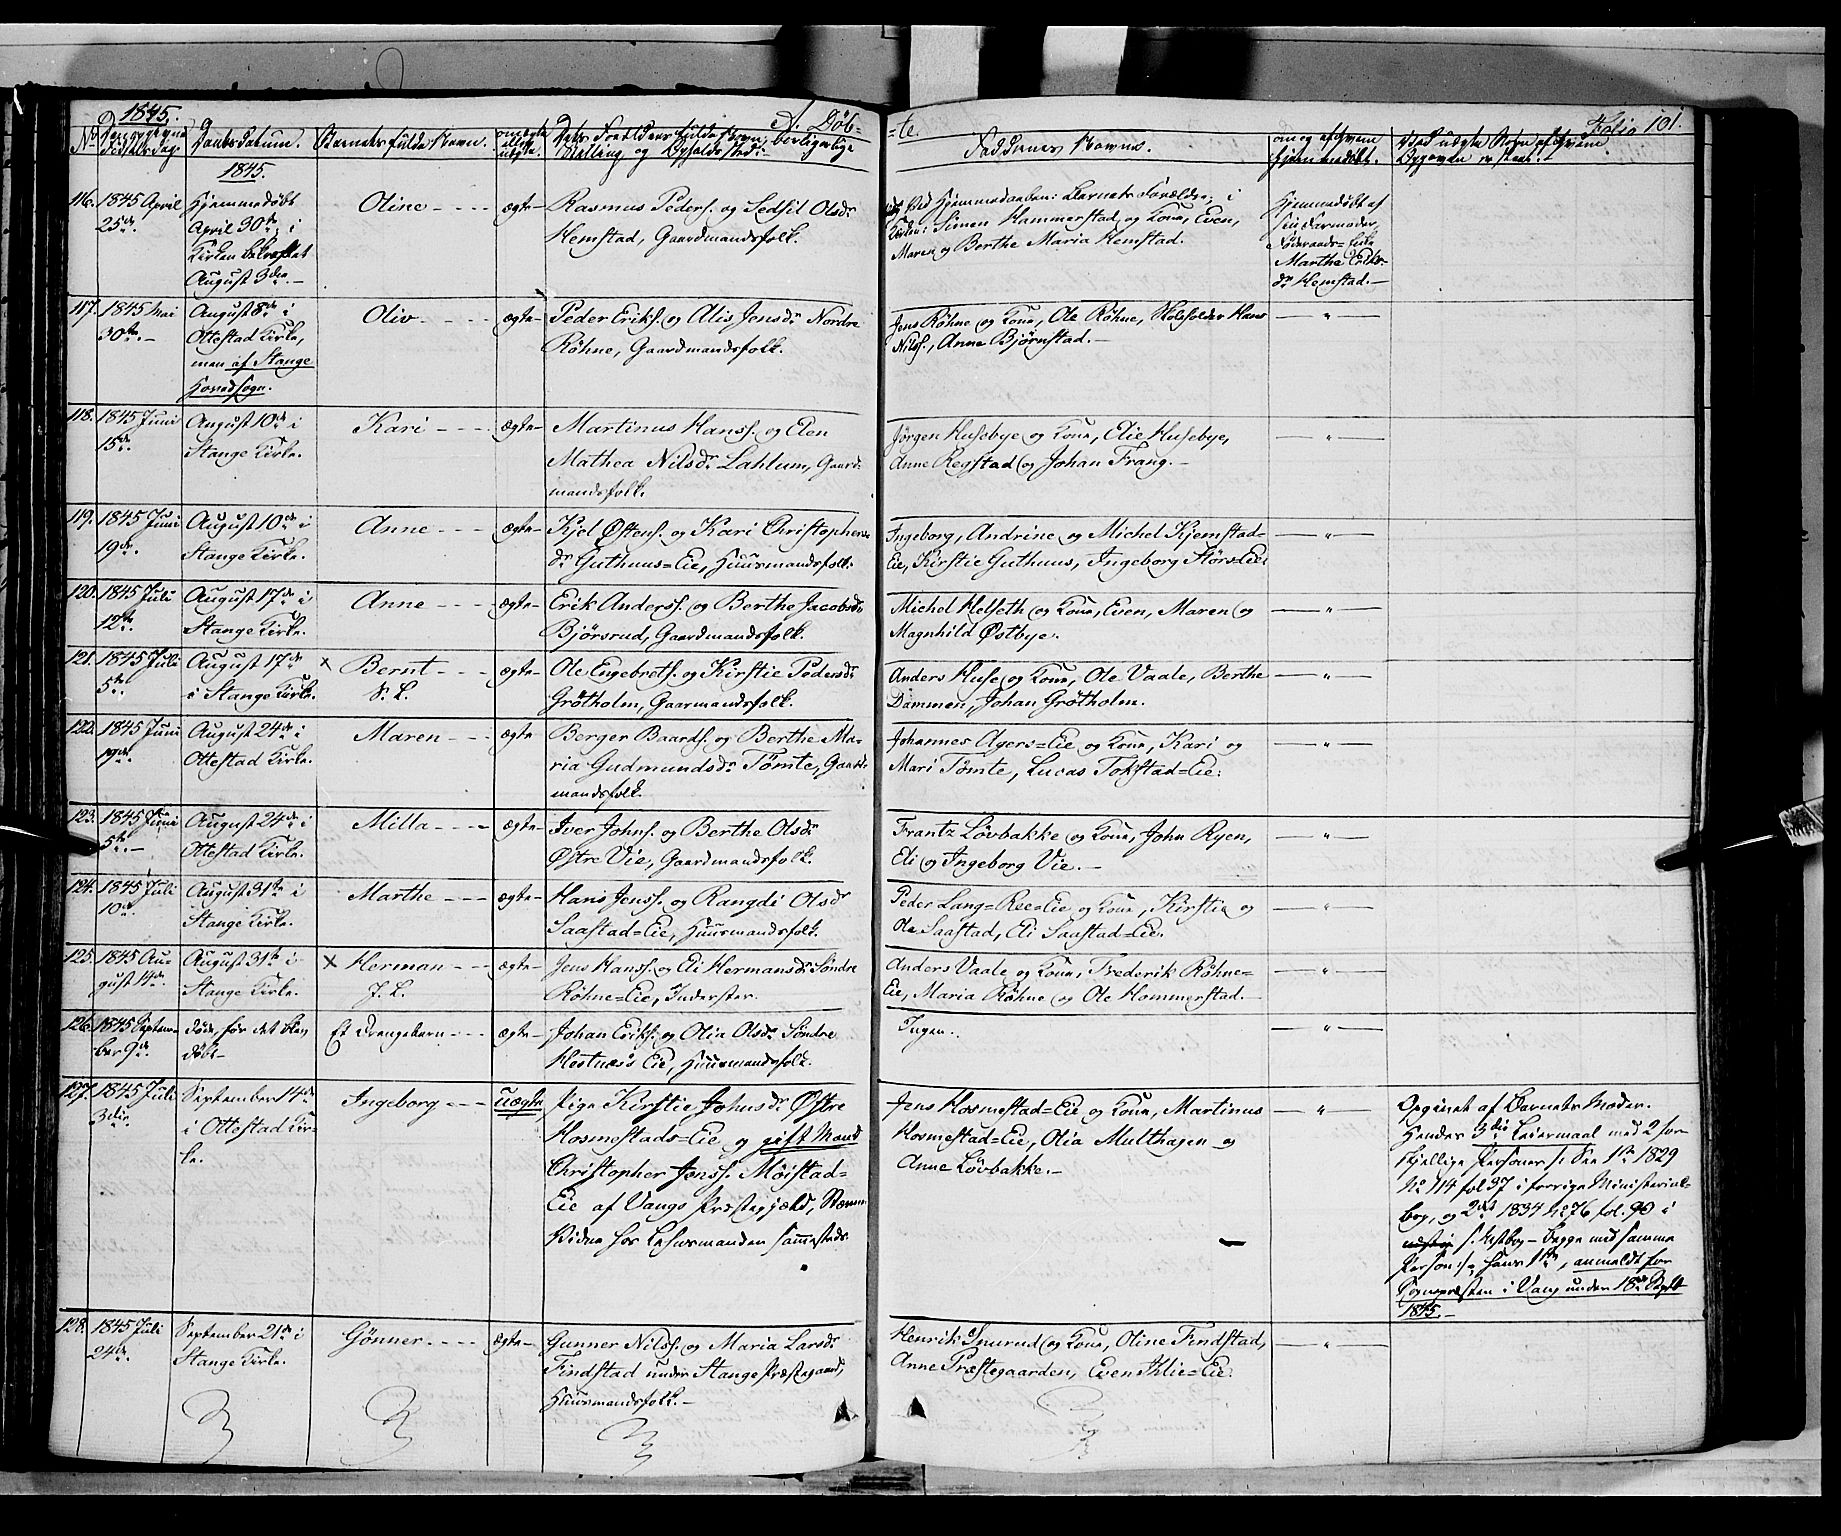 1845.
A. Döb-
-te.
Folio 101.
No
Daabs Datum.
Barnets fulde Navn.
Faddernes Navne.
1845.
116.
1845 April
25de
Hjemmedöbt
April 30te, i
Kirken bekræftet
August 3die.—
Oline
ægte
Rasmus Peders. og Sedsil Olsdr
Hemstad, Gaardmandsfolk.
Ved Hjemmedaaben: Barnets Forældre; i
Kirken: Simen Hammerstad og Kone, Even,
Maren og Berthe Maria Hemstad.
Hjemmedöbt af
Martha Eriks-
dr Hemstad.—
117.
1845 Mai
30te.—
August 8de i
Ottestad Kirke,
men af Stange
Hovedsogn.
Oliv
ægte
Peder Eriks. og Alis Jensdr Nordre
Röhne, Gaardmandsfolk.
Jens Röhne og Kone, Ole Röhne, Hans
Nilss., Anne Björnstad.—
118.
1845 Juni
15de
August 10de i
Stange Kirke.
Kari
ægte
Martinus Hanss. og Elen
Mathea Nilsdr Lahlum, Gaard-
mandsfolk.
Jörgen Husebye og Kone, Elie Husebye,
Anne Regstad og Johan Frang.—
119.
1845 Juni
19de
August 10de i
Stange Kirke.
Anne
ægte
Kjel Østens. og Kari Christophers-
dr Guthuus=Eie, Huusmandsfolk.
Ingeborg, Andrine og Michel Kjemstad=
Eie, Kirstie Guthuus, Ingeborg Hörs=Eie.
120.
1845 Juli
12te
August 17de i
Stange Kirke.
Anne
ægte
Erik Anderss. og Berthe Jacobsdr
Björsrud, Gaardmandsfolk.
Michel Helseth og Kone, Even, Maren og
Magnhild Østbye.
121.
1845 Juli
5te
August 17de
i Stange Kirke.
x Bernt
ægte
Ole Engebrets. og Kirstie Pedersdr
Grötholm, Gaardmandsfolk.
Anders Huse og Kone, Ole Vaale, Berthe
Dammen, Johan Grötholm.
122.
1845 Juni
19de
August 24de i
Ottestad Kirke.
Maren
ægte
Berger Baards. og Berthe Ma-
ria Gudmundsdr Tömte, Gaard-
mandsfolk.
Johannes Agers=Eie og Kone, Kari og
Mari Tömte, Lucas Tokstad=Eie.
123.
1845 Juni
5te.—
August 24de i
Ottestad Kirke.
Milla
ægte
Iver Johns. og Berthe Olsdr
Østre Vie, Gaardmandsfolk.
Frantz Lövbakke og Kone, John Ryen,
Eli og Ingeborg Vie.—
124.
1845 Juli
10de
August 31te i
Stange Kirke.
Marthe
ægte
Hans Jenss. og Rangdi Olsdr
Saastad=Eie, Huusmandsfolk.
Peder Lang-Ree=Eie og Kone, Kirstie og
Ole Saastad, Eli Saastad=Eie.
125.
1845 Au-
gust 14de
August 31te i
Stange Kirke.
x Herman
J. L.
ægte
Jens Hanss. og Eli Hermansdr Söndre
Röhne=Eie, Inderster.
Anders Vaale og Kone, Frederik Röhne=
Eie, Maria Röhne og Ole Hommerstad.—
126.
1845 Septem-
ber 9de
döde, för det blev
döbt—
Et Drengebarn
ægte
Johan Eriks. og Olia Olsdr Söndre
Hostnæss Eie, Huusmandsfolk.
Ingen.—
127.
1845 Juli
3die
September 14de
i Ottestad Kir-
ke.
Ingeborg
uægte
Pige Kirstie Johnsdr Østre
Hosmestads=Eie og gift Mand
Christopher Jenss. Möistad=
Eie af Vangs Præstegjeld,
hos Lehnsmanden sammesteds.
Jens Hosmestad=Eie og Kone, Martinus
Hosmestad=Eie, Olia Multhagen og
Anne Lövbakke.—
Opgivet af Barnets Moder.
Hendes 3die Leiermaal med 2 for-
skjellige Personer /: See 1te 1829
No 114 fol 37 i forrige Ministerial-
bog, og 2det 1834 No 276 fol. 90 i
Begge med samme
Person :/ Hans 1te, anmeldt for
Sognepræsten i Vang under 18de Septbr
1845.—
128.
1845 Juli
24de
September 21de i
Stange Kirke.
Gönner
ægte
Gunner Nilss. og Maria Larsdr
Findstad under Stange Præstegaard,
Huusmandsfolk.—
Henrik Snurud og Kone, Oline Findstad,
Anne Præstegaarden, Even Ihlie=Eie.